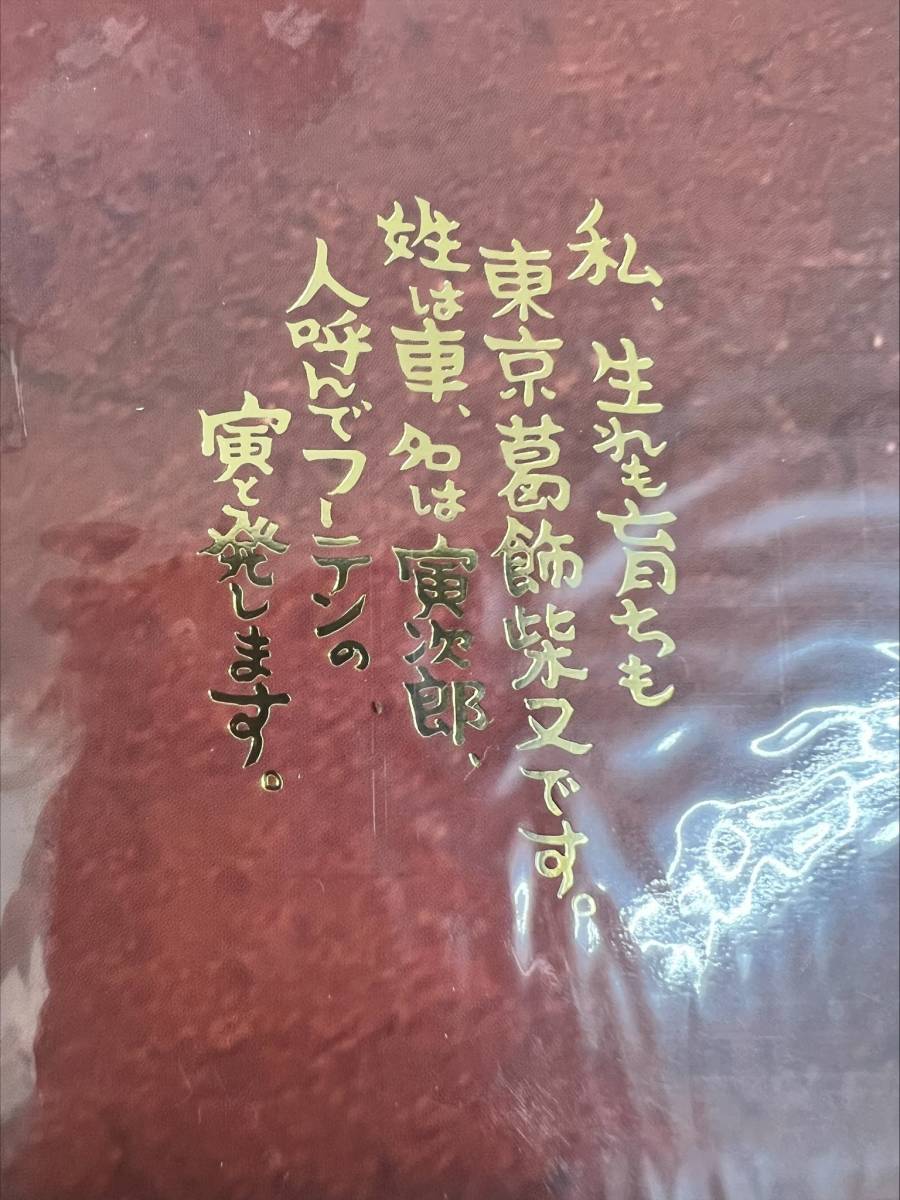 私、生れも育ちも
東京葛飾柴又です。
姓は車、名は寅次郎、
人呼んでフーテンの
寅と発します。